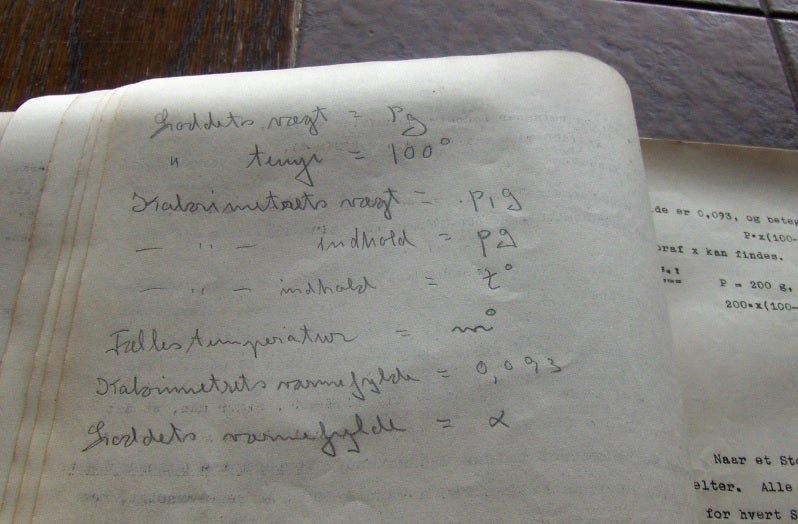 Loddets vægt = Pg
" temp = 100°
Kalorimetrets vægt = p₁g
— " — indhold = pg
— " — indhold = t°
Fællestemperatur = m°
Kalorimetrets varmefylde = 0,093
Loddets varmefylde = x
de er 0,093, og beteg
P·x(100-
oraf x kan findes.
P = 200 g,
200·x(100-
Naar et Sto
elter. Alle
for hvert S